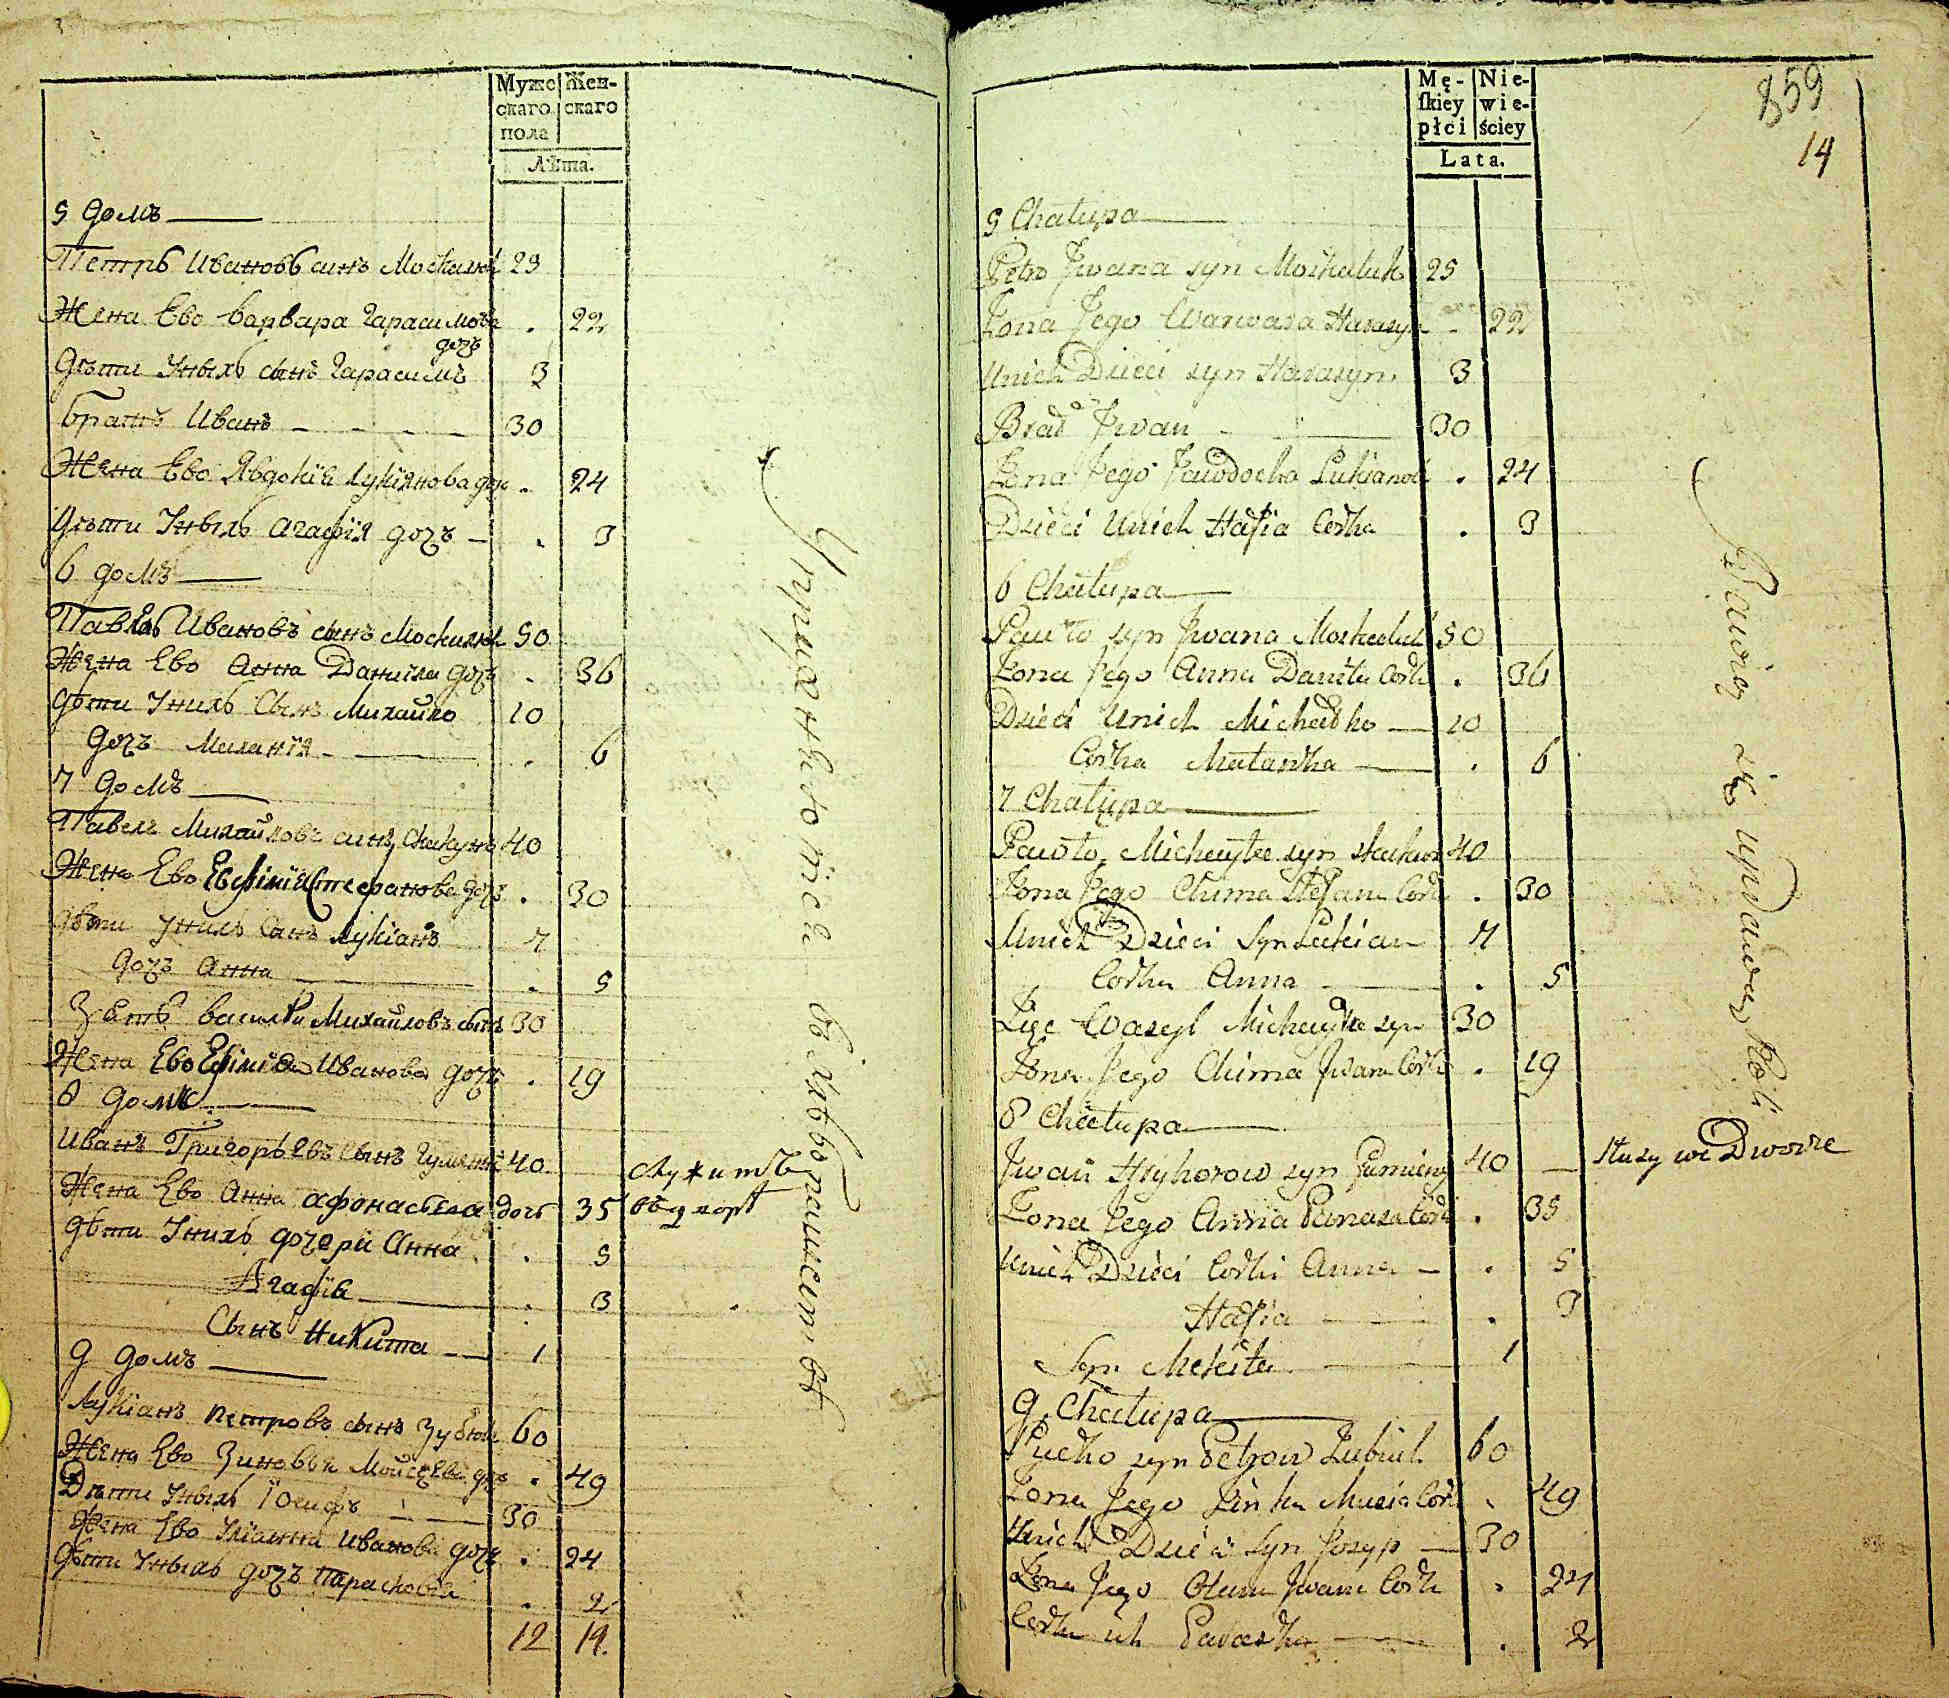 Муже
скаго
пола
Жен-
скаго
Лѣта.
5 домъ
Петръ Ивановъ синъ Москалюк 29
Жена Ево Варвара Гарасимова . 22
дочъ
Дѣти Унихъ сынъ Гарасимъ 3
братъ Иванъ 30
Жена Ево Явдокія Лукіянова доч . 24
Дѣти Унихъ Агафія дочъ . 3
6 домъ
Павелъ Ивановъ сынъ Москалюк 50
Жена Ево Анна Данила дочъ . 36
Дѣти Унихъ Сынъ Михайло 10
дочъ Маланія . 6
7 домъ
Павелъ Михайловъ синъ Скакунъ 40
Жена Ево Евфімія Стефанова дочъ . 30
Дѣти Унихъ Синъ Лукіанъ 7
дочъ Анна . 5
Зять василій Михайловъ сынъ 30
Жена Ево Ефімія Иванова дочъ . 19
8 домъ
Иванъ Григорьевъ Сынъ 40
Жена Ево Анна афонасьева дочъ 35
Дѣти Унихъ дочери Анна . 5
Агафія . 3
Сынъ Никита 1
9 домъ
Лукіанъ петровъ сынъ Зубюк 60
Жена Ево Зиновія Мойсѣева доч . 49
Дѣти Унихъ Іосифъ 30
Жена Ево Уліянна иванова дочъ . 24
Дѣти Унихъ дочъ Парасковія . 2
12 14.
Служитъ
въ дворѣ
Упражняютса въ хлѣбопашествѣ
859
14
Mę-
skiey
płci
Nie-
wie-
ściey
Lata.
5 Chałupa
Petro Jwana syn Moskaluk 25
Zona Jego Warwara Harasym . 22
Unich Dzieci syn Harasym 3
Brad Jwan 30
Zona Jego Jawdocha Łukianow . 24
Dzieci Unich Hafia Corka . 3
6 Chałupa
Pawło syn Jwana Moskaluk 50
Zona Jego Anna Daniła Corka . 36
Dzieci Unich Michałko 10
Corka Małanka . 6
7 Chałupa
Pawło Michayła syn Skakun 40
Zona Jego Chima Stefana Corka . 30
Unich Dzieci Syn Łukian 7
Corka Anna . 5
Zięc Wasyl Michayła syn 30
Zona Jego Chima Jwana Corka . 19
8 Chałupa
Jwan Hryhorow syn 40
Zona Jego Anna Panasa Corka . 35
Unich Dzieci Corki Anna . 5
Hafia . 3
Syn Mekita 1
9 Chałupa
syn Petrow Zubiuk 60
Zona Jego Zinka Musia Corka . 49
Unich Dzieci Syn Josyp 30
Zona Jego Olena Jwana Corka . 24
Corka ich Paraska . 2
Służy we Dworze
Bawią się uprawą Roli